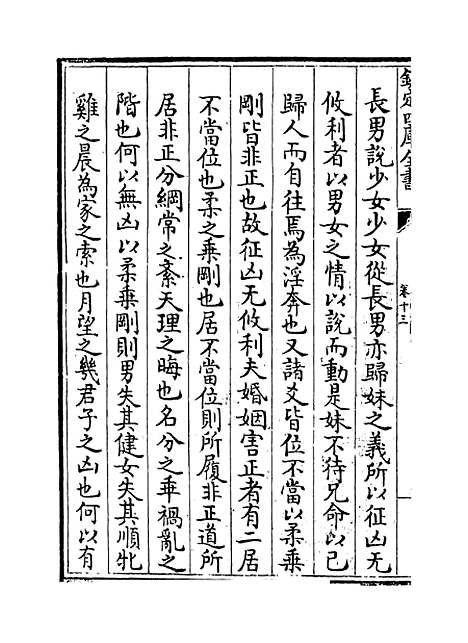 欽定四庫全書
卷十三
長男說少女少女從長男亦歸妹之義所以征凶无
攸利者以男女之情以說而動是妹不待兄命以己
歸人而自往焉為淫奔也又諸爻皆位不當以柔乗
剛皆非正也故征凶无攸利夫婚姻害正者有二居
不當位也柔之乗剛也居不當位則所履非正道所
居非正分綱常之紊天理之晦也名分之乖禍亂之
階也何以無凶以柔乗剛則男失其健女失其順牝
雞之晨為家之索也月望之幾君子之凶也何以有